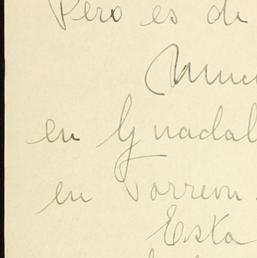 Pero es de
Much
en Guadal
en Torreon.
Esta